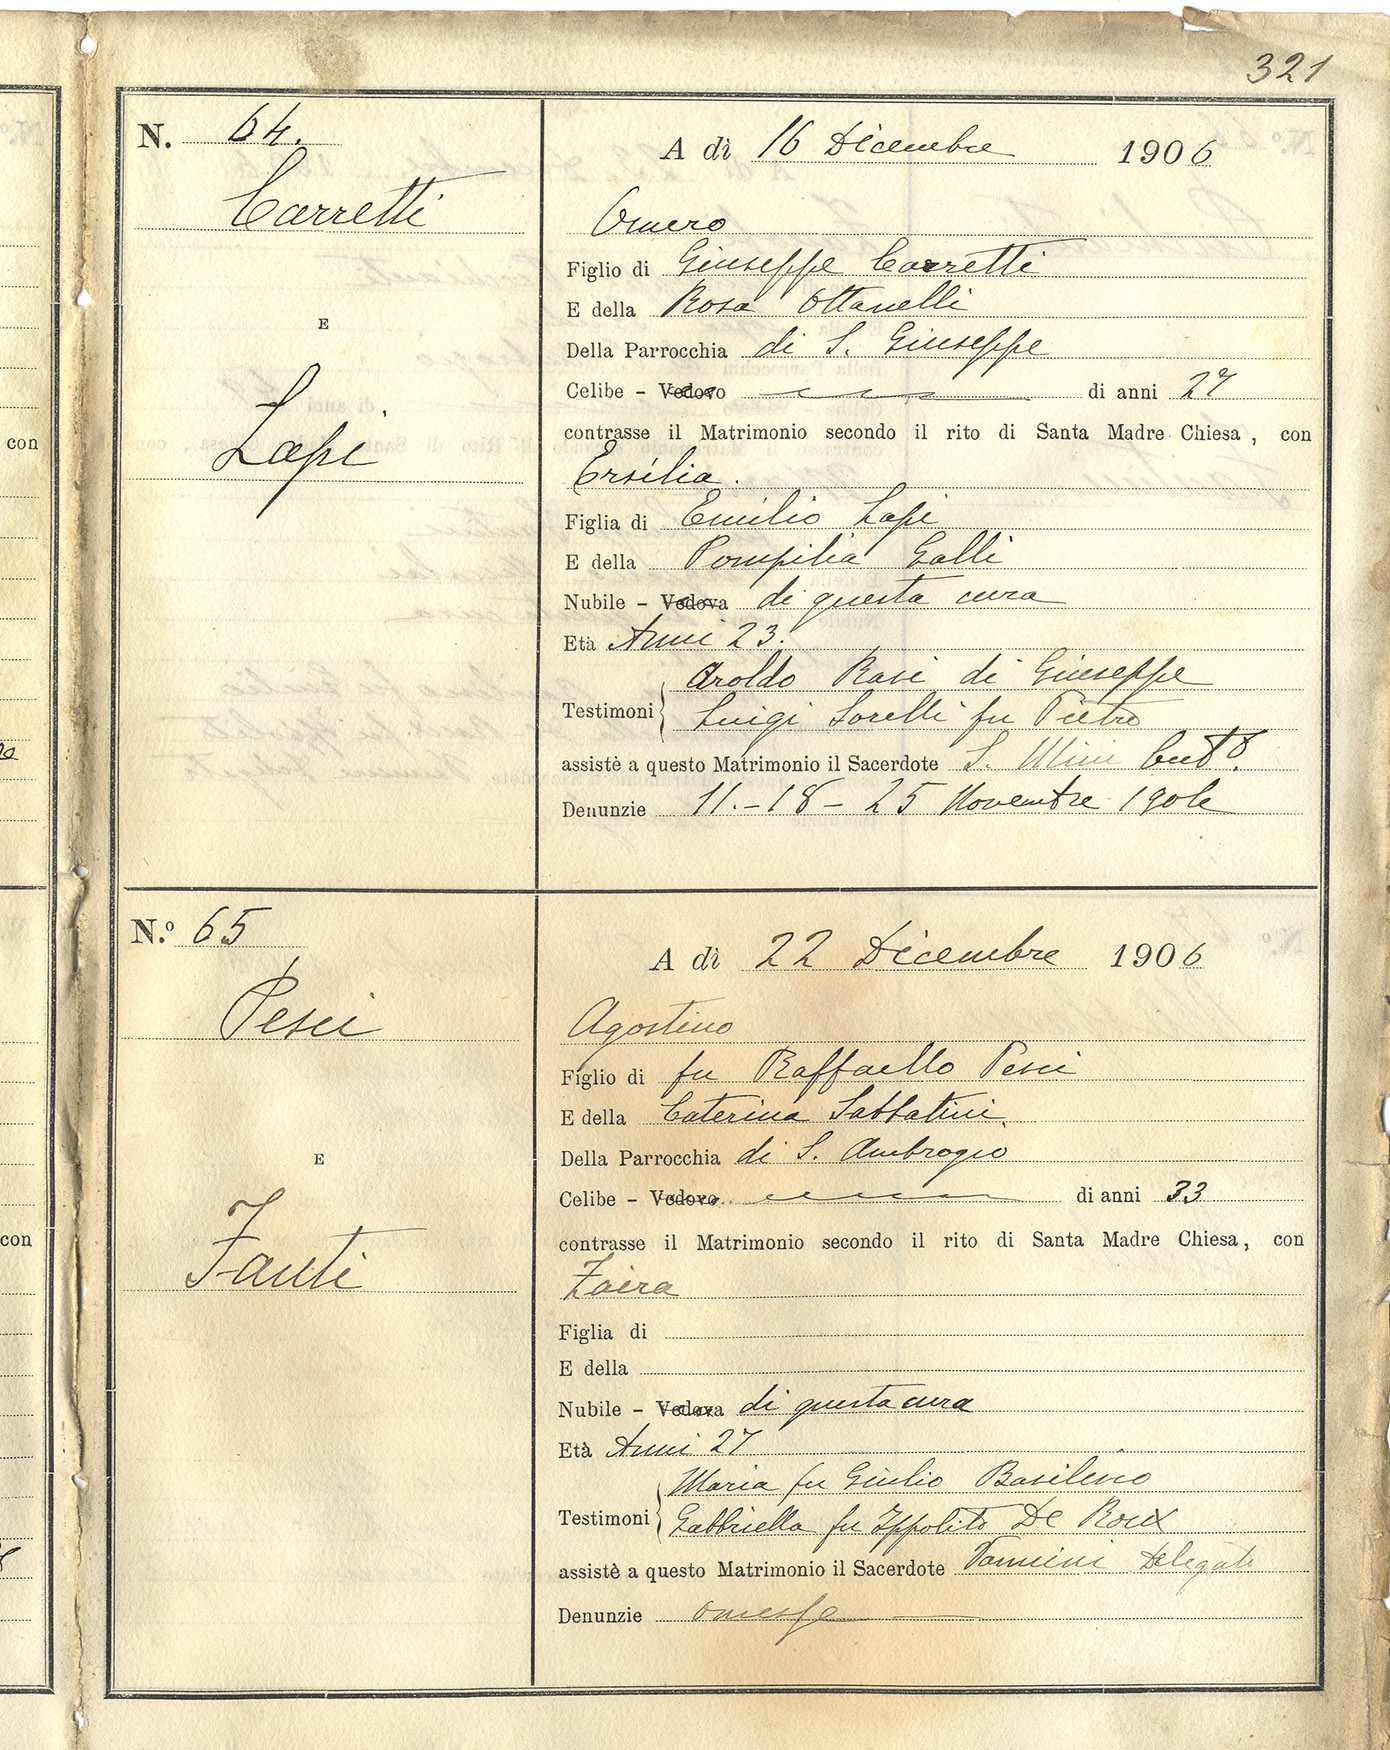 321
N. 64.
Carretti
E
Lapi
A dì 16 Dicembre 1906
Omero
Figlio di Giuseppe Carretti
E della Rosa Ottanelli
Della Parrocchia di S. Giuseppe
Celibe - Vedovo di anni 27
contrasse il Matrimonio secondo il rito di Santa Madre Chiesa, con
Ersilia.
Figlia di Emilio Lapi
E della Pompilia Galli
Nubile - Vedova di questa cura
Età Anni 23.
Testimoni Aroldo Rasi di Giuseppe
Luigi Sorelli fu Pietro
assistè a questo Matrimonio il Sacerdote S. Mini
Denunzie 11.-18-25 Novembre 1906
N.º 65
Pesci
E
Fanti
A dì 22 Dicembre 1906
Agostino
Figlio di fu Raffaello Pesci
E della Caterina Sabbatini
Della Parrocchia di S. Ambrogio
Celibe - Vedovo di anni 33
contrasse il Matrimonio secondo il rito di Santa Madre Chiesa, con
Zaira
Figlia di
E della
Nubile - Vedova di questa cura
Età Anni 27
Testimoni Maria fu Giulio Basileno
Gabbriella fu Ippolito De Roux
assistè a questo Matrimonio il Sacerdote Vannini Delegato
Denunzie omesse
con
con